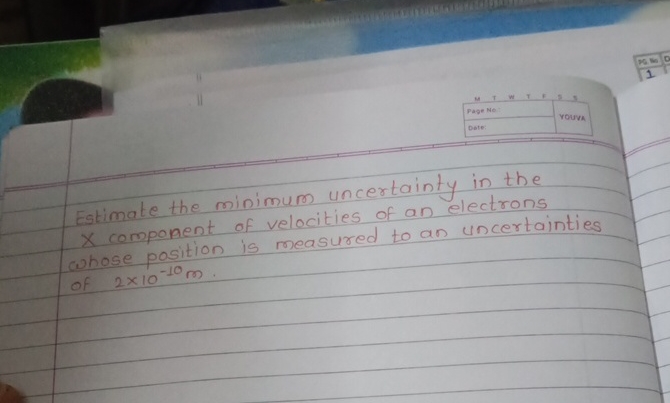 PG. No.
1
M T W T F S S
Page No.:
Date:
YOUVA
Estimate the minimum uncertainty in the
X component of velocities of an electrons
whose position is measured to an uncertainties
of 2×10⁻¹⁰m.